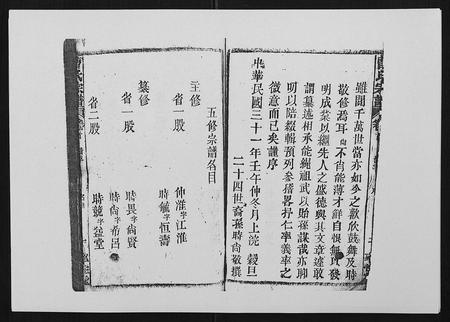 雖閱千萬世當亦如今之歡欣鼓舞及時
敬修焉耳尙不肖能薄才鮮自愧無以發
明成業以繼先人之盛德與其文章遽敢
謂纂述相承能繩祖武以貽孫謀哉亦聊
明以陪綴輯預列參稽畧抒仁率義率之
微意而已矣謹序
中華民國三十一年壬午仲冬月上浣 穀旦
二十四世裔孫時尙敬撰
五修宗譜名目
主修
省一股 仲淮字江淮
時毓字恒壽
纂修
省一股 時畏字尙賢
時尙字希呂
省二股 時競字益堂